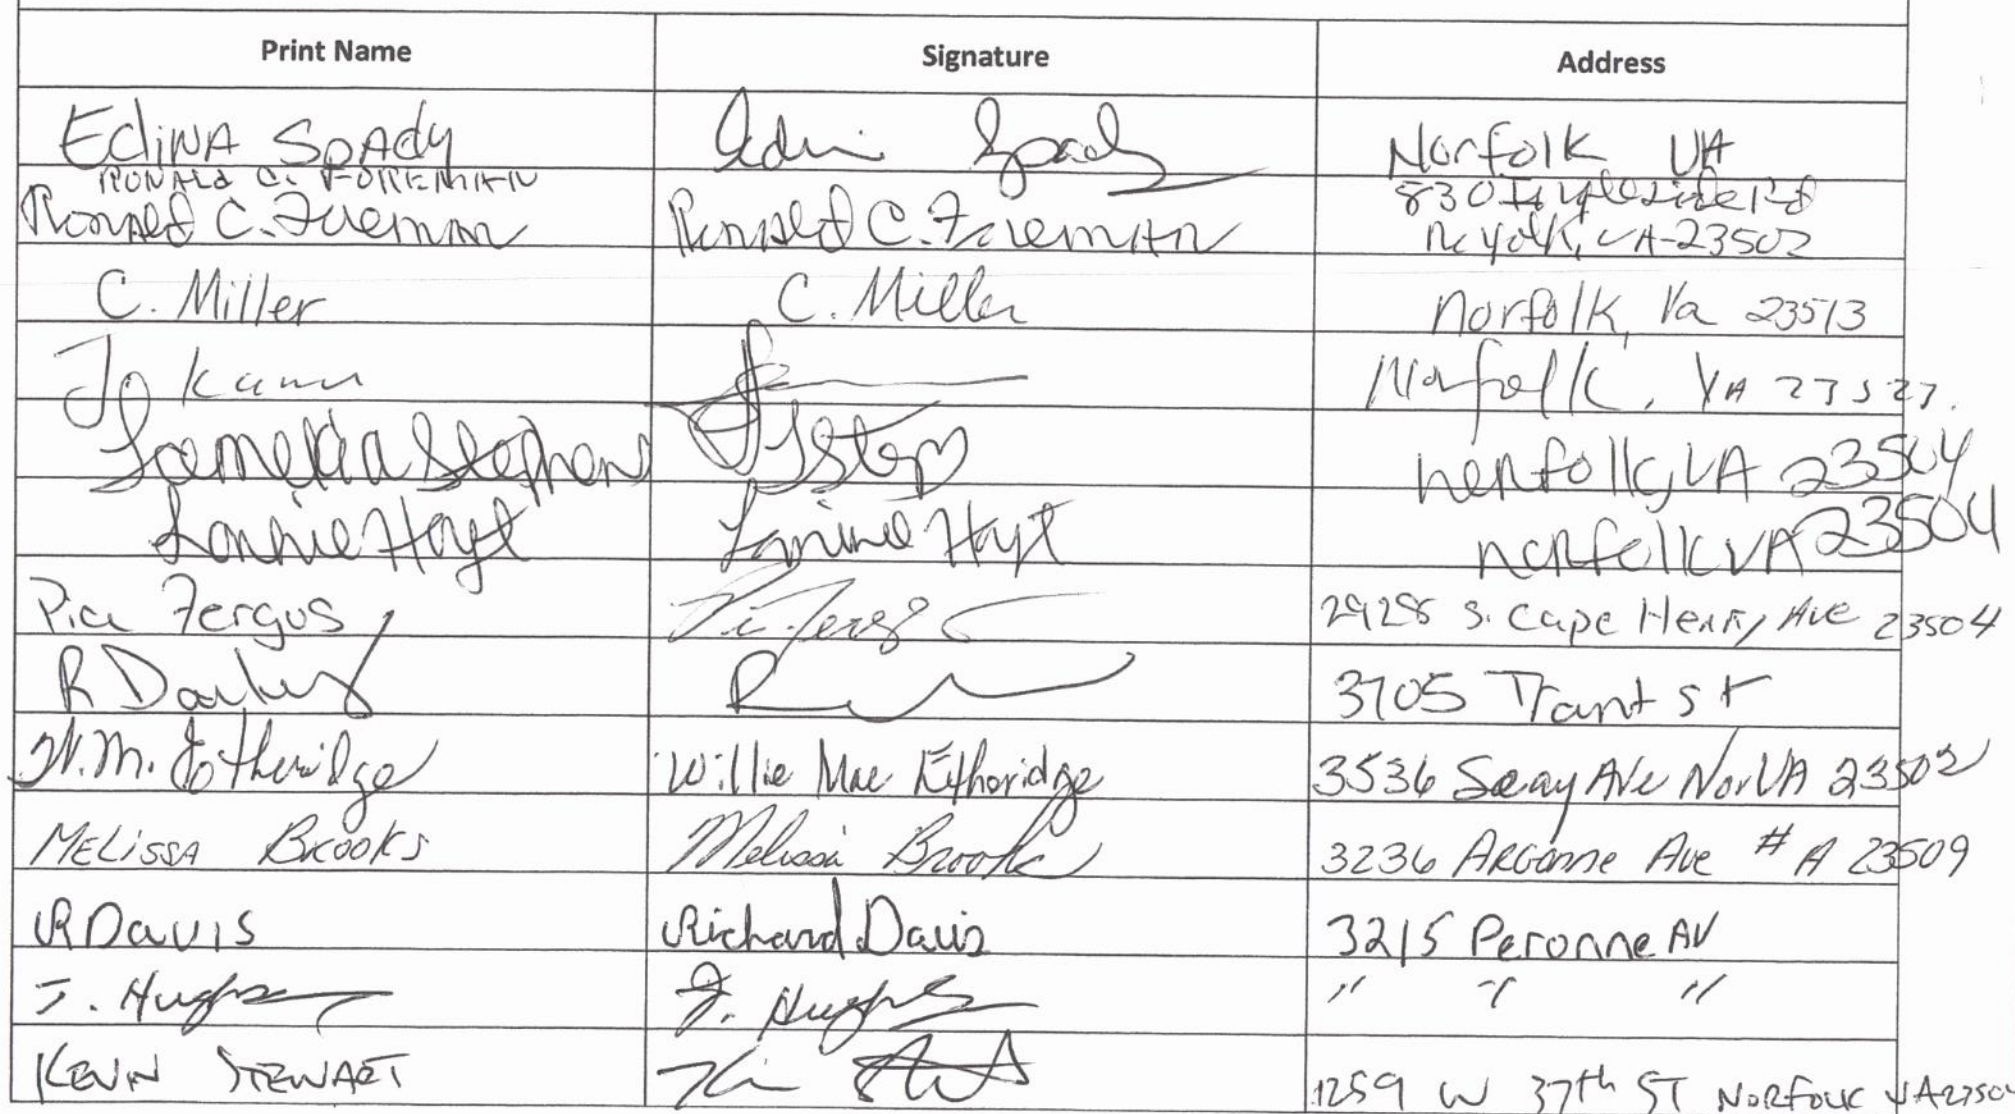 Print Name Signature Address
Edina Spady Edin Spady Norfolk VA
RONALd C. FOREMAN 830 Ingleside Rd
Ronald C. Foreman Ronald C. Foreman Norfolk, VA-23502
C. Miller C. Miller Norfolk, Va 23513
Jo Norfolk, VA 23523.
Stephens norfolk, VA 23504
Lonnie Hoyt Lonnie Hoyt norfolk VA 23504
Pia Fergus Pi Fergus 2928 S. Cape Henry Ave 23504
R 3705 Trant st
W.M. Etheridge Willie Mae Etheridge 3536 Seay Ave Nor VA 23502
MELISSA BROOKS Melissa Brooks 3236 Argonne Ave # A 23509
R Davis Richard Davis 3215 Peronne AV
J. Hughes J. Hughes " " "
KEVIN STEWART 1259 W 37th ST NORFOLK VA